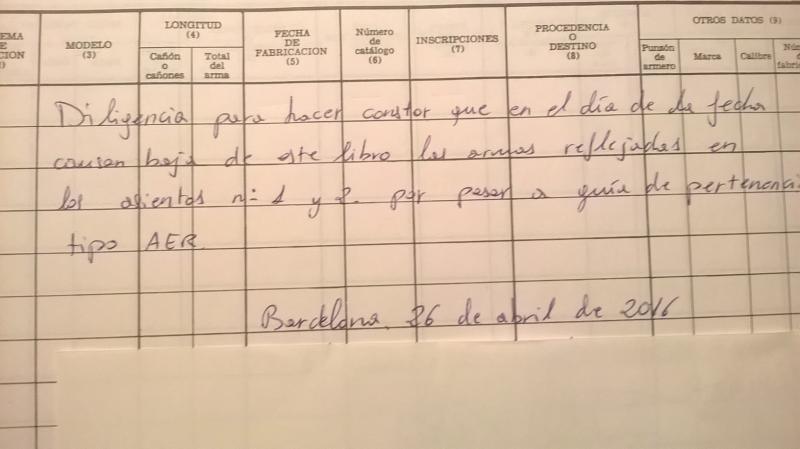 EMA
E
CION
MODELO
(3)
LONGITUD
(4)
Cañón
o
cañones
Total
del
arma
FECHA
DE
FABRICACION
(5)
Número
de
catálogo
(6)
INSCRIPCIONES
(7)
PROCEDENCIA
O
DESTINO
(8)
OTROS DATOS (9)
Punzón
de
armero
Marca
Calibre
Núm
d
fabric
Diligencia para hacer constar que en el día de la fecha
causan baja de este libro las armas reflejadas en
los asientos nº 1 y 2 por pasar a guía de pertenenci
tipo AER
Barcelona, 26 de abril de 2016